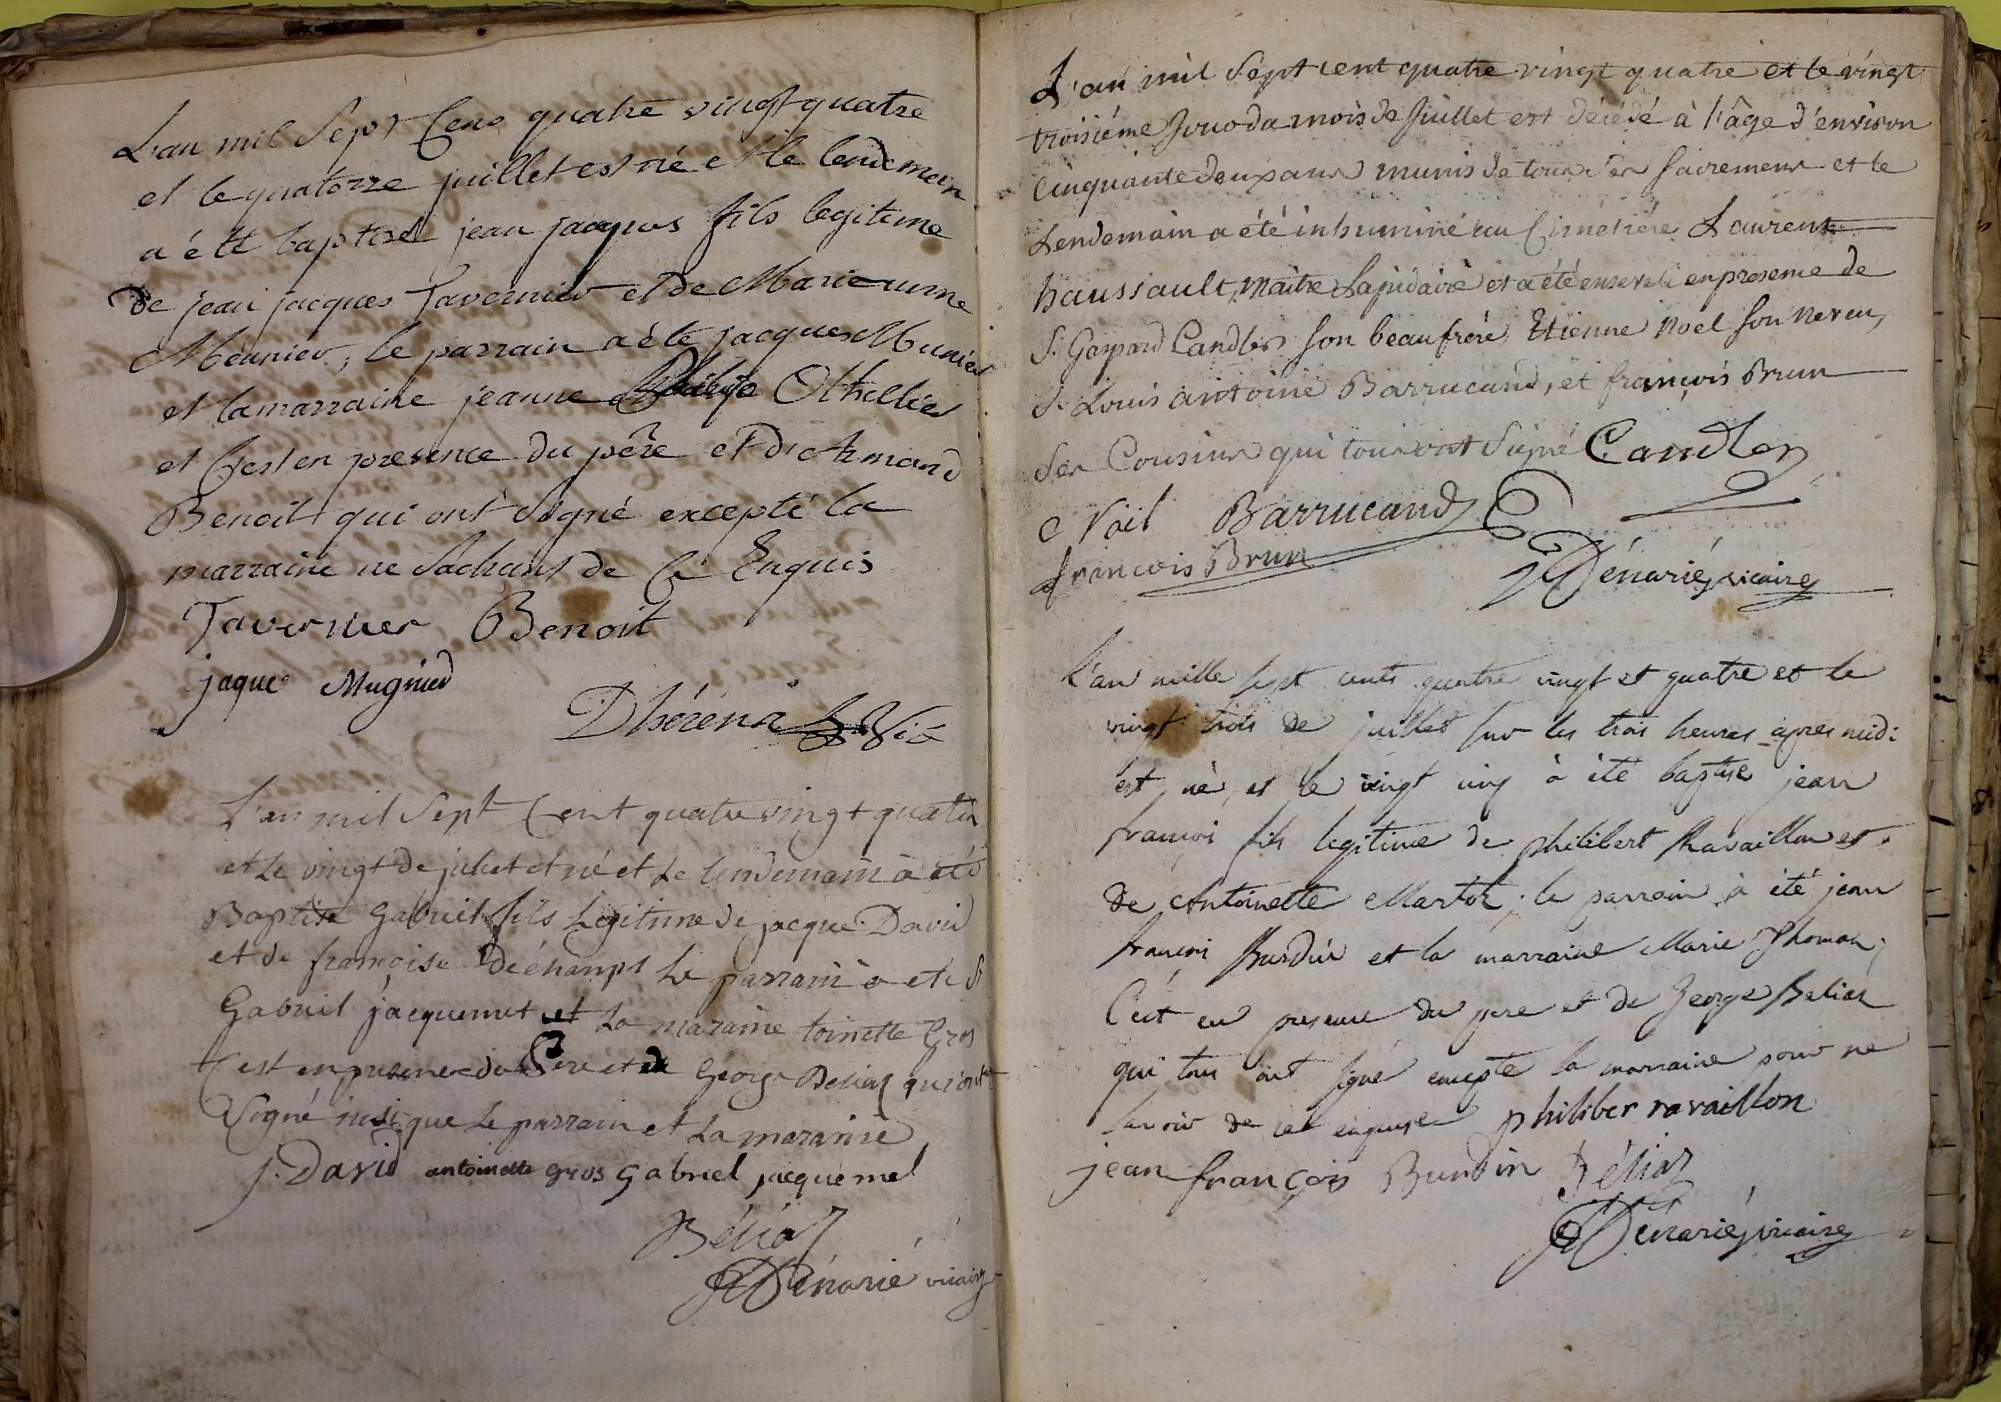 L'an mil Sept Cens quatre vingt quatre
et le quatorze juillet est né et le lendemain
a été baptisé jean jacques fils legitime
de jean jacques Tavernier et de Marie
Meunier, le parrain a été jacques Munier
et la marraine jeanne Othellier
et C'est en presence du père et d'Armand
Benoit qui ont Signé excepté la
marraine ne Sachant de Ce Enquis
Tavernier Benoit
jaque Mugnier
D'hérens
L'an mil Sept Cent quatre vingt quatre
et Le vingt de juliet et né et Le lendemain a été
Baptise Gabriel fils Legitime de jacque David
et de françoise déchamps Le parrain a eté
Gabriel jacquemet et La maraine toinette Gros
C'est en presence du Pere et de George Béliaz qui ont
Signé insi que Le parrain et La maraine
J. David antoinette gros gabriel jacquemel
Béliaz
Dénarié vicaire
L'an mil Sept cent quatre vingt quatre et le vingt
troisiéme Jour du mois de Juillet est décédé à l'âge d'environ
Cinquante deux ans munis de tous Ses Sacremens et le
Lendemain a été inhuminé au Cimetiére Laurent
haussault, maitre Lapidaire et a été enseveli en presence de
S.r Gaspard Candler son beaufrére, Etienne Noel son Neveu,
S.r Louis antoine Barrucand, et françois Brun
Ses Cousins qui tous ont Signé Candler
Noël Barrucand
françois Brun
Dénarié, vicaire
L'an mille sept cents quatre vingt et quatre et le
vingt trois de juillet sur les trois heures apres midi
est né, et le vingt cinq à été baptise jean
françois fils legitime de philibert Ravaillon et
de Antoinette Martoz; le parrain à été jean
françois Burdin et la marraine Marie Thomas;
C'est en presence du pere et de George Beliaz
qui tous ont signé excepté la marraine pour ne
savoir de ce enquise philiber ravaillon
jean françois Burdin Béliaz
Dénarié, vicaire